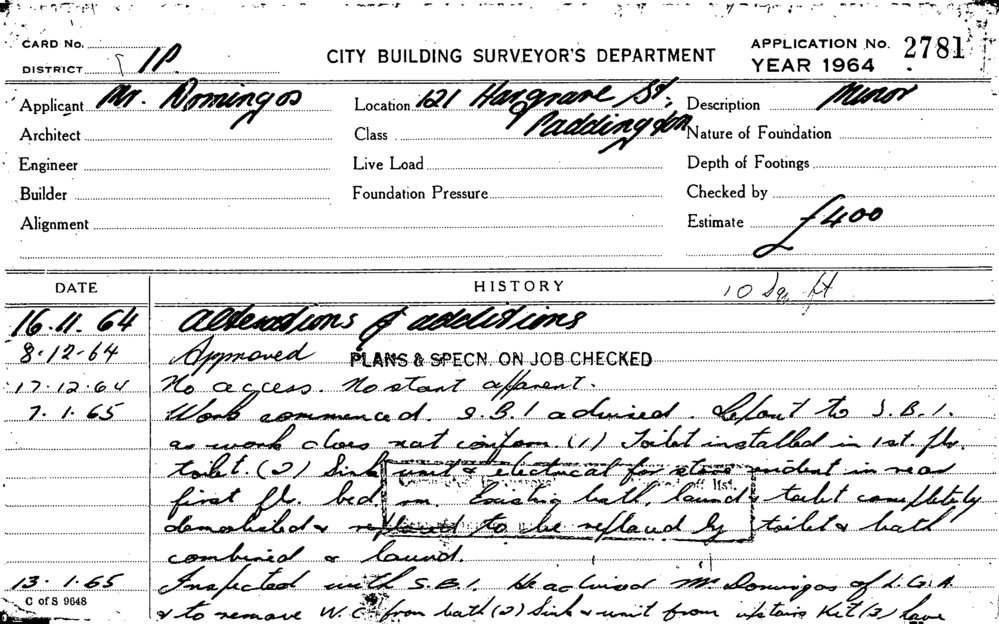 CARD No.
DISTRICT 1P
CITY BUILDING SURVEYOR'S DEPARTMENT
APPLICATION No. 2781
YEAR 1964
Applicant Mr. Domingos
Location 121 Hargrave St,
Paddington
Description Minor
Architect
Class
Nature of Foundation
Engineer
Live Load
Depth of Footings
Builder
Foundation Pressure
Checked by
Alignment
Estimate £400
DATE
HISTORY
10 Sq. ft
16.11.64 Alterations & additions
8.12.64 Approved PLANS & SPECN. ON JOB CHECKED
17.12.64 No access. No start apparent.
7.1.65 Work commenced. S.B.I advised. Report to S.B.I.
as work does not conform. (1) Toilet installed in 1st. flr.
toilet. (2) Sink unit & electrical for stove evident in rear
first fl. bed rm. Existing bath, laund & toilet completely
off list.
demolished & to be replaced by toilet & bath
combined & laund.
13.1.65 Inspected with S.B.I. He advised Mr Domingos of L.G.A
& to remove W.C. from bath (2) Sink & unit from upstairs Kit (3) have
C of S 9648